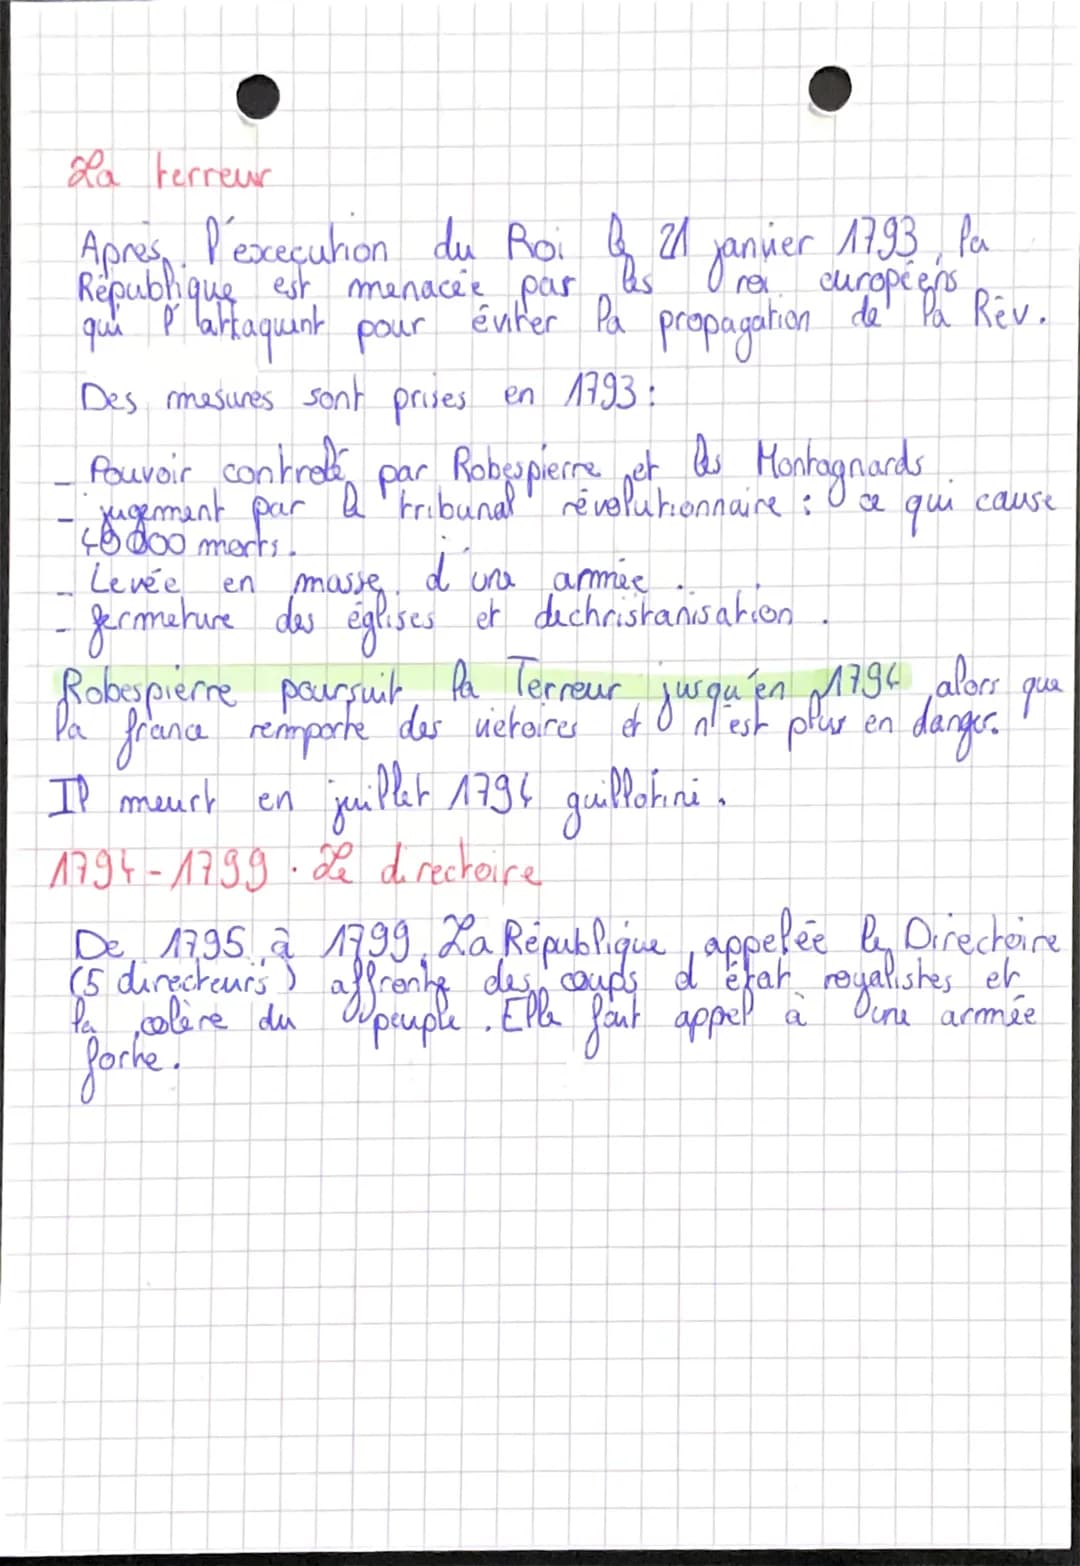 La terreur
Après l'execution du Roi le 21 janvier 1793, la
République est menacée par les roi européens
qui l'attaquent pour éviter la propagation de la Rév.
Des mesures sont prises en 1793 :
- Pouvoir controlé par Robespierre et les Montagnards
- jugement par le tribunal révolutionnaire : ce qui cause
40 000 morts.
- Levée en masse d'une armée.
- fermeture des églises et dechristanisation.
Robespierre poursuit la Terreur jusqu'en 1794 alors que
la france remporte des victoires et n'est plus en danger.
Il meurt en juillet 1794 guillotiné.
1794-1799 . Le directoire
De 1795 à 1799, La République, appelée le Directoire
(5 directeurs) affronte des coups d'état royalistes et
la colère du peuple. Elle fait appel à une armée
forte.